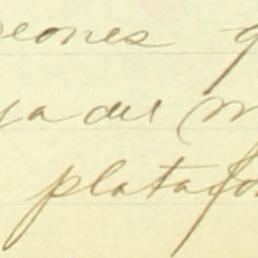 eones q
ya del m
platafo